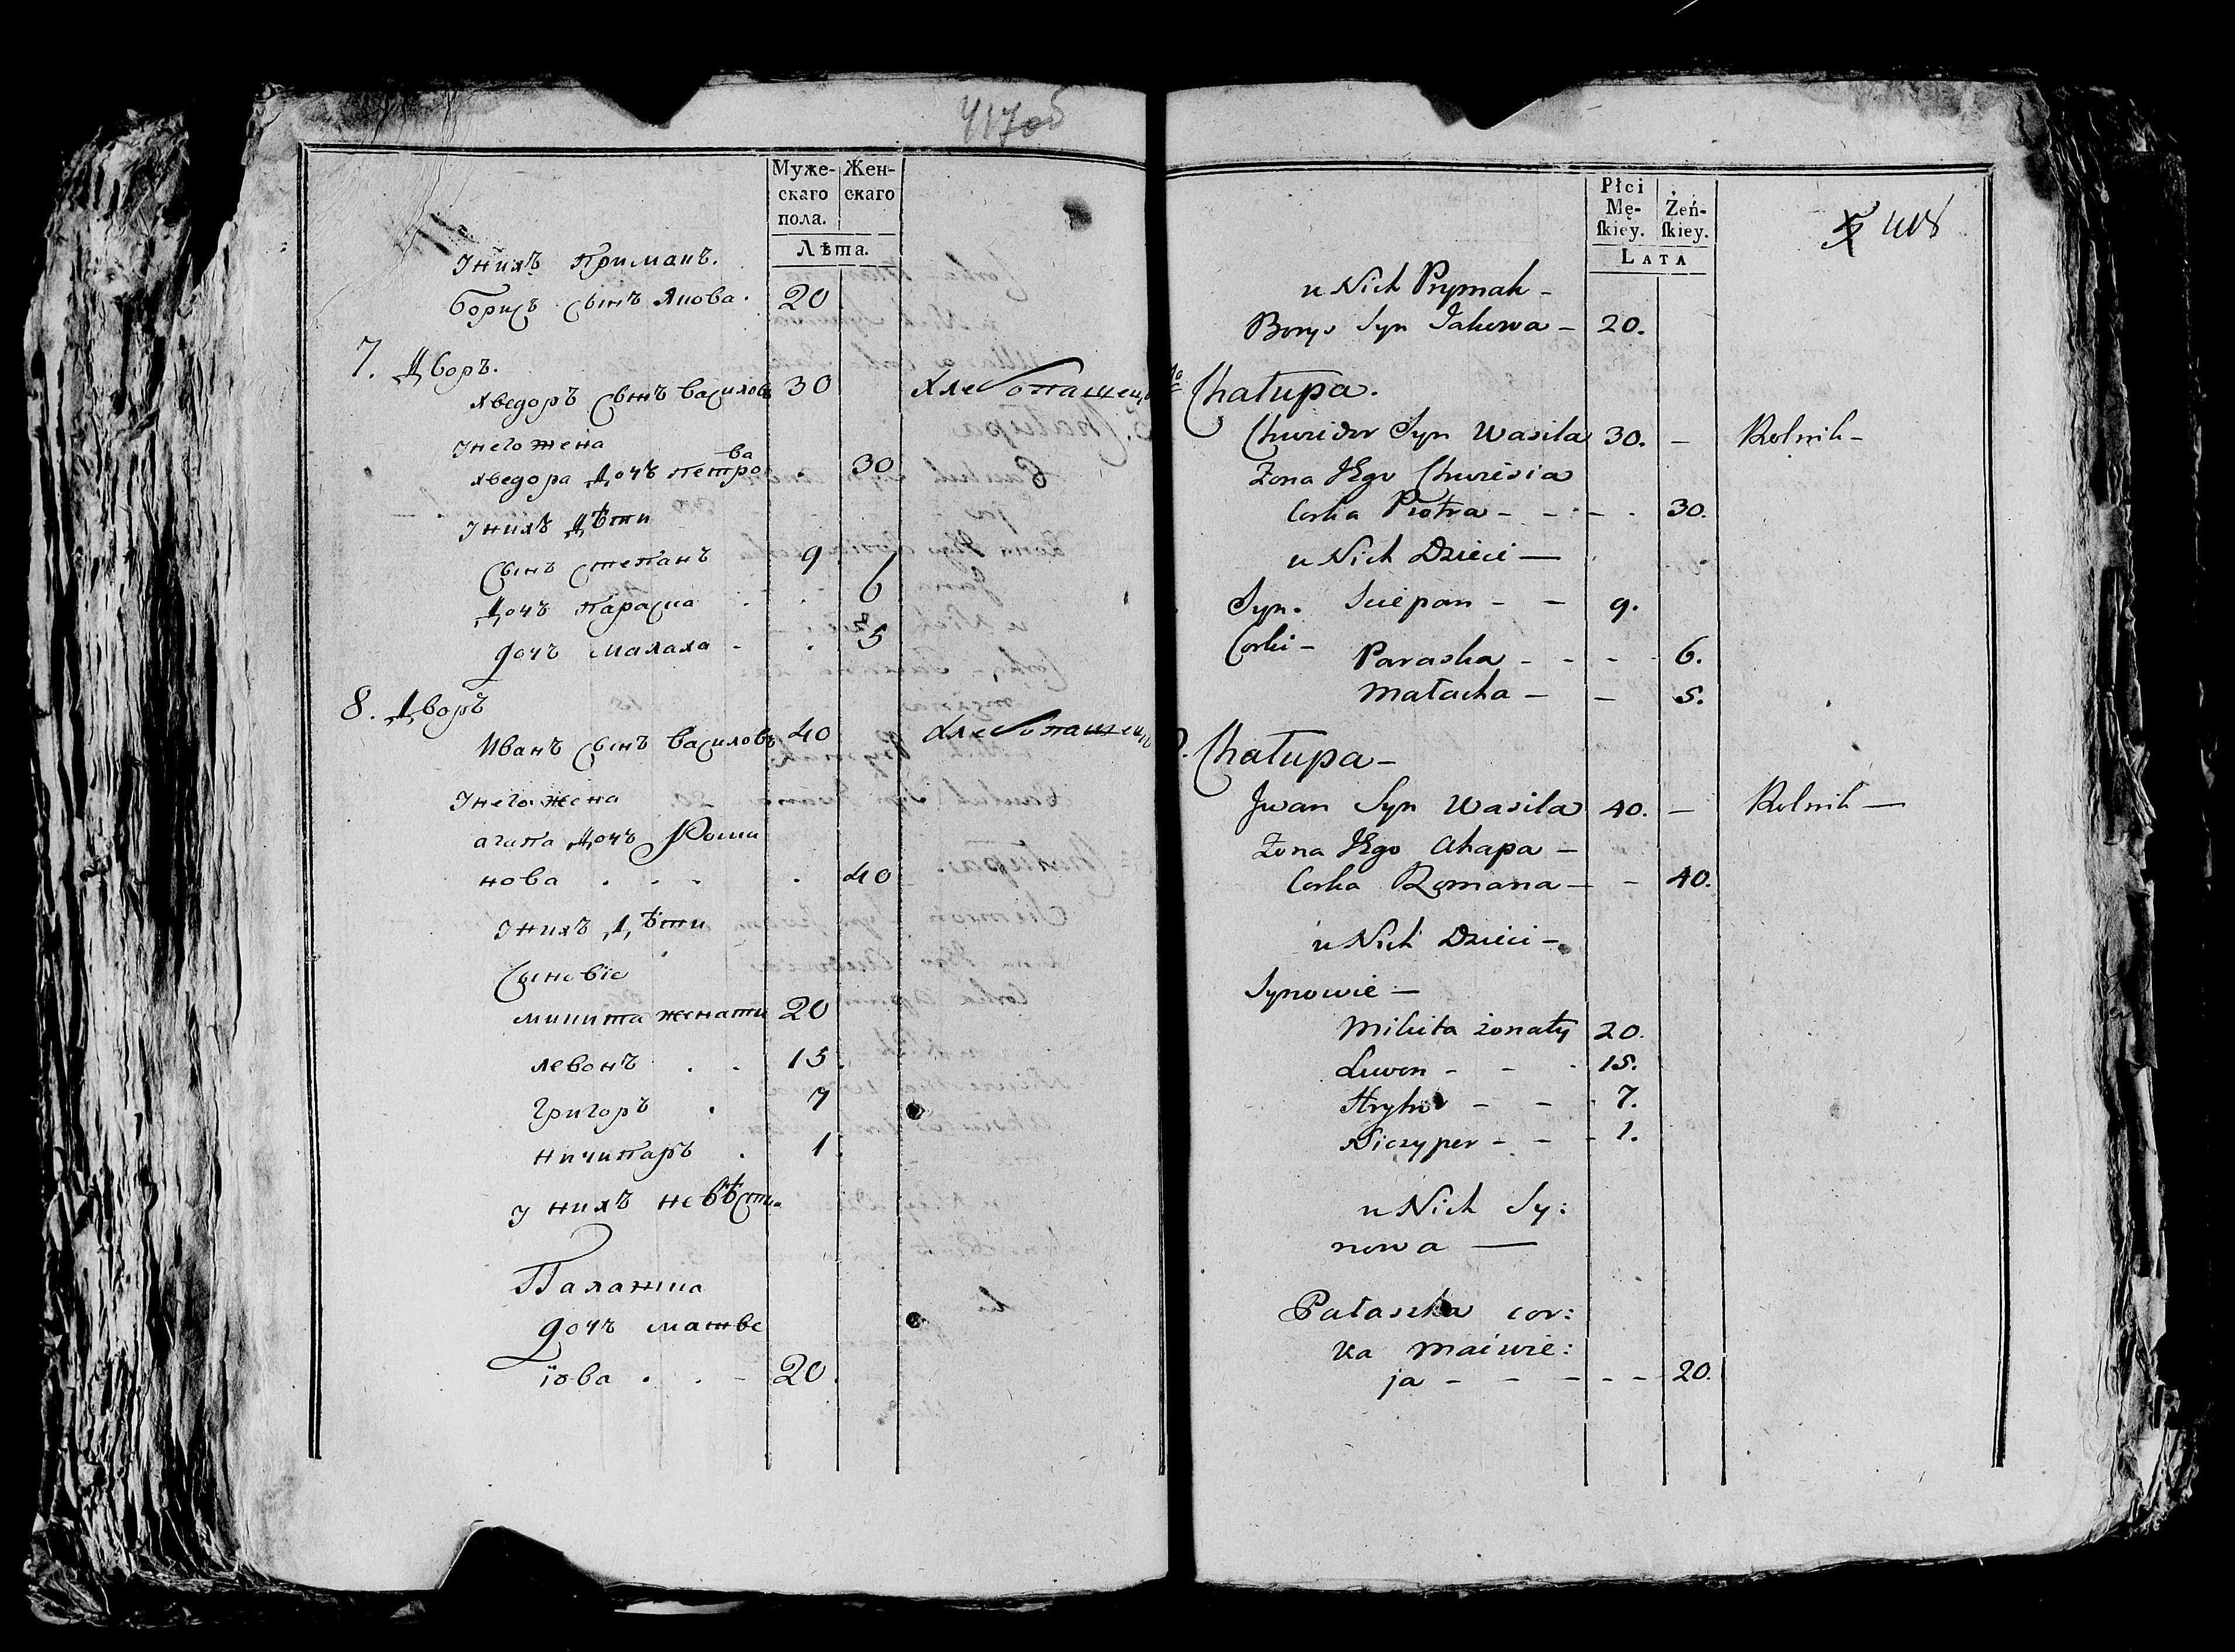 417об
Муже- Жен-
скаго скаго
пола.
Лѣта.
Унихъ Примакъ.
Борисъ сынъ Якова. 20
7. Дворъ.
хведоръ сынъ василовъ 30 хлебопашецъ
Унего жена
хведора дочъ петрова . 30
Унихъ Дѣти
Сынъ степанъ 9
Дочъ параска . . 6
дочъ малаха - . 5
8. Дворъ
Иванъ сынъ василовъ 40 хлебопашецъ
Унего жена
агапа дочъ Рома
нова . . - . 40
Унихъ Дѣти
Сыновіе
микита женати 20
левонъ . . 15
григоръ . 7
ничипаръ . 1
у нихъ невѣстка
Палажка
дочъ матве
іова . . - 20
5 418
Płci
Mę- Żeń-
ſkiey. ſkiey.
LATA
u Nich Prymak -
Borys Syn Jakowa - 20.
Chałupa.
Chwiedor Syn Wasila 30. - Rolnik -
Żona JEgo Chwiesia
Corka Piotra - - - - 30.
u Nich Dzieci -
Syn. Sciepan - - 9.
Corki - Paraska - - - 6.
Małacha - - 5.
8. Chałupa -
Jwan Syn Wasila 40. - Rolnik -
Żona JEgo Ahapa -
Corka Romana - - 40.
u Nich Dzieci -
Synowie -
Mikita żonaty 20.
Lewon - - - 15.
Hryhor - - - 7.
Niczyper - - - 1.
u Nich Sy:
nowa -
Pałaszka cor:
ka Maćwie:
ja - - - - - 20.